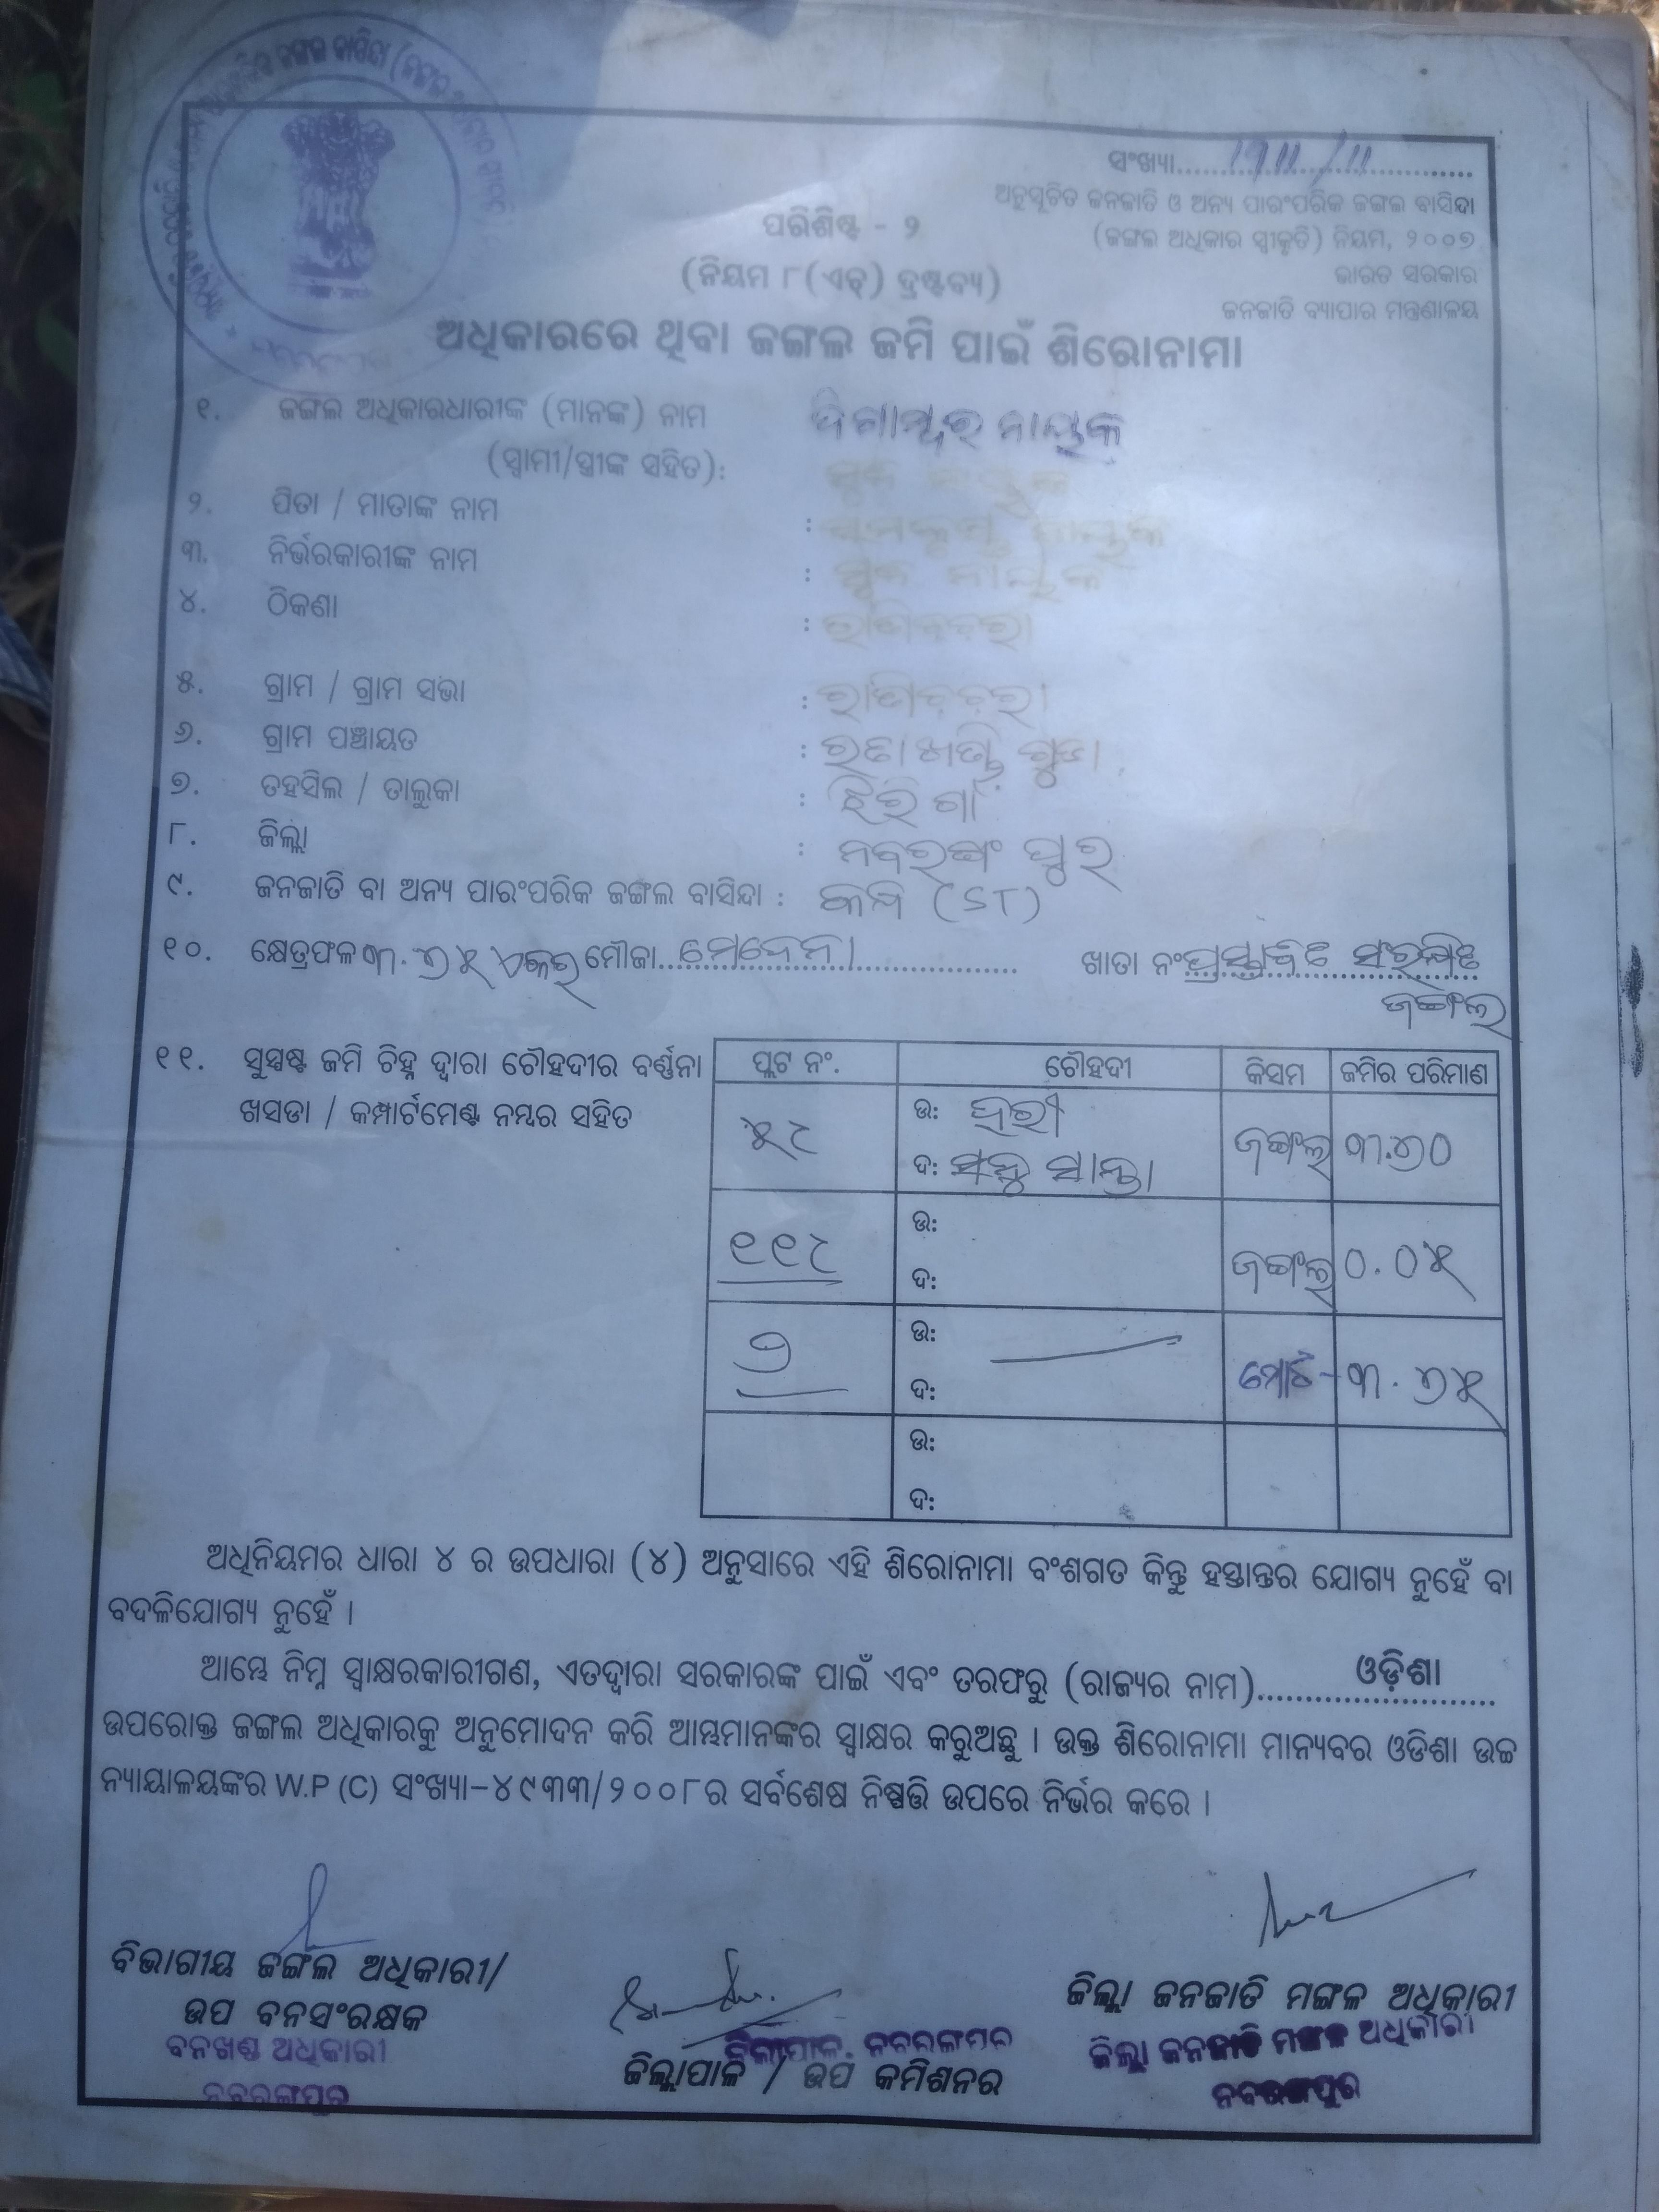 ସଂଖ୍ୟା..........1911/11..........
ଅନୁସୂଚିତ ଜନଜାତି ଓ ଅନ୍ୟ ପାରଂପରିକ ଜଙ୍ଗଲ ବାସିନ୍ଦା
(ଜଙ୍ଗଲ ଅଧିକାର ସ୍ୱୀକୃତି) ନିୟମ, ୨୦୦୭
ଭାରତ ସରକାର
ଜନଜାତି ବ୍ୟାପାର ମନ୍ତ୍ରଣାଳୟ
ପରିଶିଷ୍ଟ - ୨
(ନିୟମ ୮(ଏଚ୍) ଦ୍ରଷ୍ଟବ୍ୟ)
ଅଧିକାରରେ ଥିବା ଜଙ୍ଗଲ ଜମି ପାଇଁ ଶିରୋନାମା
୧. ଜଙ୍ଗଲ ଅଧିକାରଧାରୀଙ୍କ (ମାନଙ୍କ) ନାମ ଦିଗାମ୍ବର ନାୟକ
(ସ୍ୱାମୀ/ସ୍ତ୍ରୀଙ୍କ ସହିତ):
୨. ପିତା / ମାତାଙ୍କ ନାମ : ନାୟକ
୩. ନିର୍ଭରକାରୀଙ୍କ ନାମ : ନାୟକ
୪. ଠିକଣା :
୫. ଗ୍ରାମ / ଗ୍ରାମ ସଭା :
୬. ଗ୍ରାମ ପଞ୍ଚାୟତ : ଗୁଡା
୭. ତହସିଲ / ତାଲୁକା : ଝରିଗାଁ
୮. ଜିଲ୍ଲା : ନବରଙ୍ଗପୁର
୯. ଜନଜାତି ବା ଅନ୍ୟ ପାରଂପରିକ ଜଙ୍ଗଲ ବାସିନ୍ଦା : (ST)
୧୦. କ୍ଷେତ୍ରଫଳ ୩.୬୫ ଏକର ମୌଜା..ମେଦେନା.......... ଖାତା ନଂ ପ୍ରସ୍ତାବିତ ସଂରକ୍ଷିତ
ଜଙ୍ଗଲ
୧୧. ସୁସ୍ପଷ୍ଟ ଜମି ଚିହ୍ନ ଦ୍ୱାରା ଚୌହଦୀର ବର୍ଣ୍ଣନା
ଖସଡା / କମ୍ପାର୍ଟମେଣ୍ଟ ନମ୍ବର ସହିତ
ପ୍ଲଟ ନଂ. ଚୌହଦୀ କିସମ ଜମିର ପରିମାଣ
୫୯ ଉ: ହରୀ ଜଙ୍ଗଲ ୩.୬୦
ଦ: ସାନ୍ତା
୧୧୯ ଉ: ଜଙ୍ଗଲ ୦.୦୫
ଦ:
୨ ଉ: ମୋଟ- ୩.୬୫
ଦ:
ଉ:
ଦ:
ଅଧିନିୟମର ଧାରା ୪ ର ଉପଧାରା (୪) ଅନୁସାରେ ଏହି ଶିରୋନାମା ବଂଶଗତ କିନ୍ତୁ ହସ୍ତାନ୍ତର ଯୋଗ୍ୟ ନୁହେଁ ବା
ବଦଳିଯୋଗ୍ୟ ନୁହେଁ ।
ଆମ୍ଭେ ନିମ୍ନ ସ୍ୱାକ୍ଷରକାରୀଗଣ, ଏତଦ୍ୱାରା ସରକାରଙ୍କ ପାଇଁ ଏବଂ ତରଫରୁ (ରାଜ୍ୟର ନାମ)..........ଓଡ଼ିଶା..........
ଉପରୋକ୍ତ ଜଙ୍ଗଲ ଅଧିକାରକୁ ଅନୁମୋଦନ କରି ଆମ୍ଭମାନଙ୍କର ସ୍ୱାକ୍ଷର କରୁଅଛୁ । ଉକ୍ତ ଶିରୋନାମା ମାନ୍ୟବର ଓଡିଶା ଉଚ୍ଚ
ନ୍ୟାୟାଳୟଙ୍କର W.P (C) ସଂଖ୍ୟା-୪୯୩୩/୨୦୦୮ର ସର୍ବଶେଷ ନିଷ୍ପତ୍ତି ଉପରେ ନିର୍ଭର କରେ ।
ବିଭାଗୀୟ ଜଙ୍ଗଲ ଅଧିକାରୀ/
ଉପ ବନସଂରକ୍ଷକ
ବନଖଣ୍ଡ ଅଧିକାରୀ
ନବରଙ୍ଗପୁର
ଜିଲ୍ଲାପାଳ, ନବରଙ୍ଗପୁର
ଜିଲ୍ଲାପାଳ / ଉପ କମିଶନର
ଜିଲ୍ଲା ଜନଜାତି ମଙ୍ଗଳ ଅଧିକାରୀ
ଜିଲ୍ଲା ଜନଜାତି ମଙ୍ଗଳ ଅଧିକାରୀ
ନବରଙ୍ଗପୁର